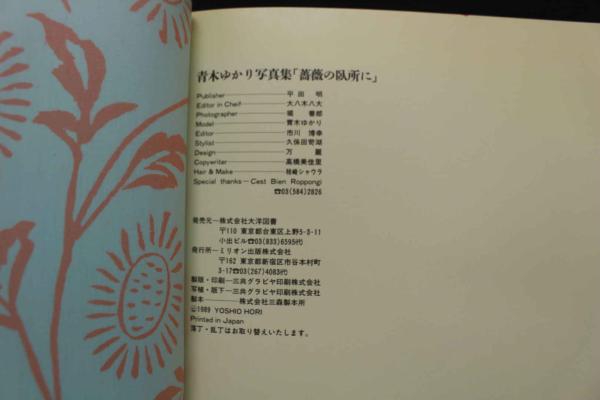 青木ゆかり写真集「薔薇の臥所に」
Publisher 平田 明
Editor in Cheif 大八木八大
Photographer 堀 善郎
Model 青木ゆかり
Editor 市川 博幸
Stylist 久保田奇湖
Design 万 麗
Copywriter 高橋美佳里
Hair & Make 柿崎シャウラ
Special thanks — C'est Bien Roppongi
☎03(584)2826
発売元—株式会社大洋図書
〒110 東京都台東区上野5-3-11
小出ビル☎03(833)6595代
発行所—ミリオン出版株式会社
〒162 東京都新宿区市谷本村町
3-17☎03(267)4083代
製版・印刷—三共グラビヤ印刷株式会社
写植・版下—三共グラビヤ印刷株式会社
製本 株式会社三森製本所
©1989 YOSHIO HORI
Printed in Japan
落丁・乱丁はお取り替えいたします。